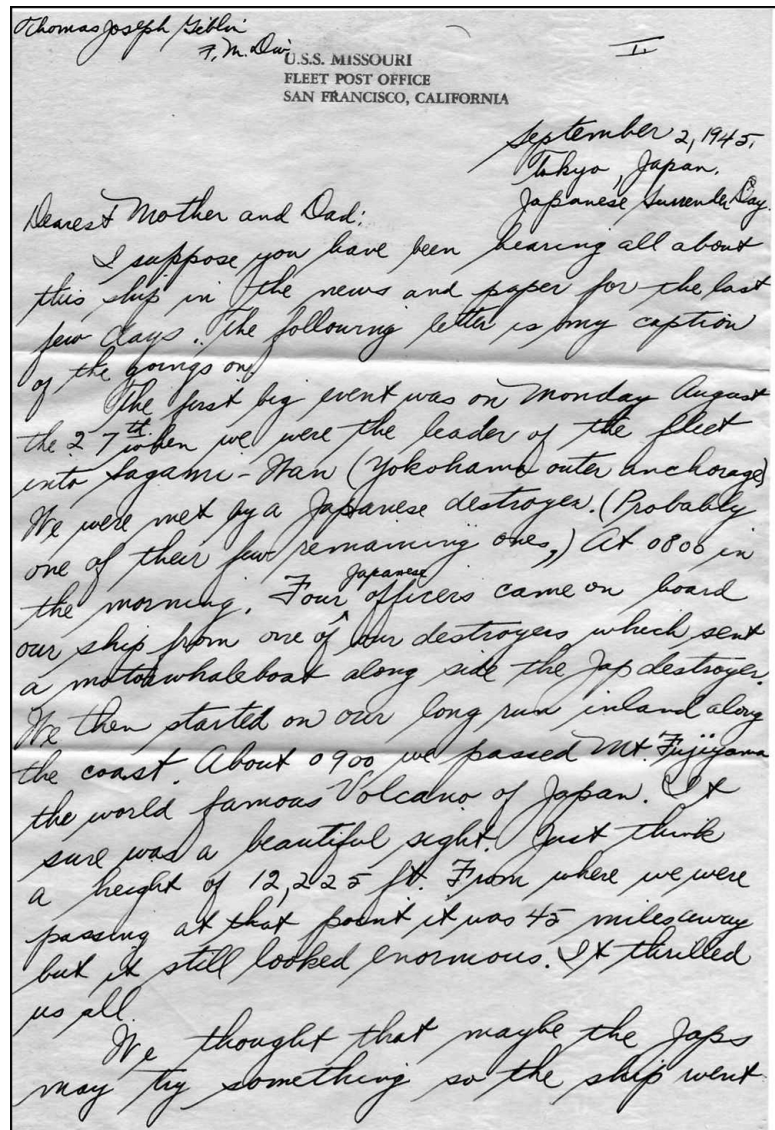 Thomas Joseph Giblin
F. M. Div.
I
U.S.S. MISSOURI
FLEET POST OFFICE
SAN FRANCISCO, CALIFORNIA
September 2, 1945.
Tokyo, Japan.
Japanese Surrender Day.
Dearest Mother and Dad:
I suppose you have been hearing all about
this ship in the news and paper for the last
few days. The following letter is my caption
of the goings on
The first big event was on Monday August
the 27th when we were the leader of the fleet
into Sagami-Wan (Yokohama outer anchorage)
We were met by a Japanese destroyer. (Probably
one of their few remaining ones,) At 0800 in
the morning. Four Japanese officers came on board
our ship from one of our destroyers which sent
a motorwhaleboat along side the Jap destroyer.
We then started on our long run inland along
the coast. About 0900 we passed Mt. Fujiyama
the world famous Volcano of Japan. It
sure was a beautiful sight. Just think
a height of 12,225 ft. From where we were
passing at that point it was 45 miles away
but it still looked enormous. It thrilled
us all.
We thought that maybe the Japs
may try something so the ship went